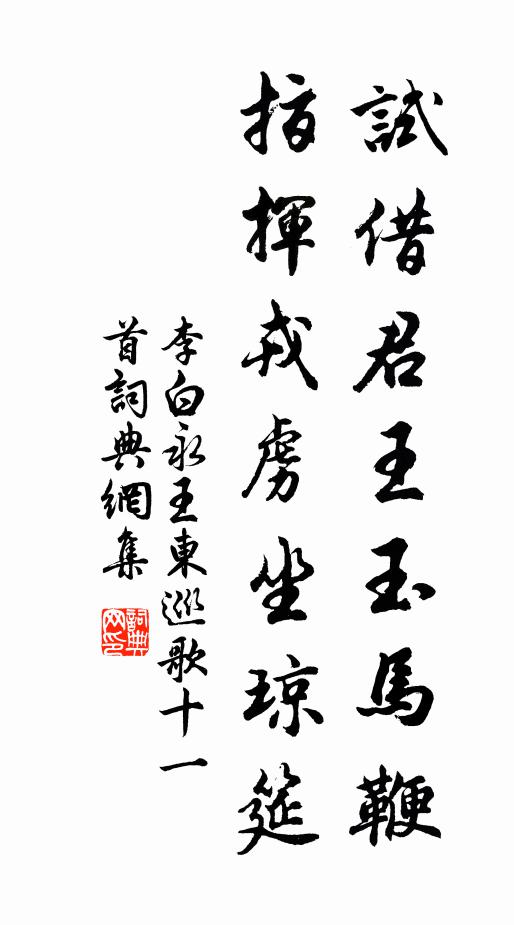 試借君王玉馬鞭
指揮戎虜坐琼筵
李白永王東巡歌十一
首詞典網集
詞典
网印